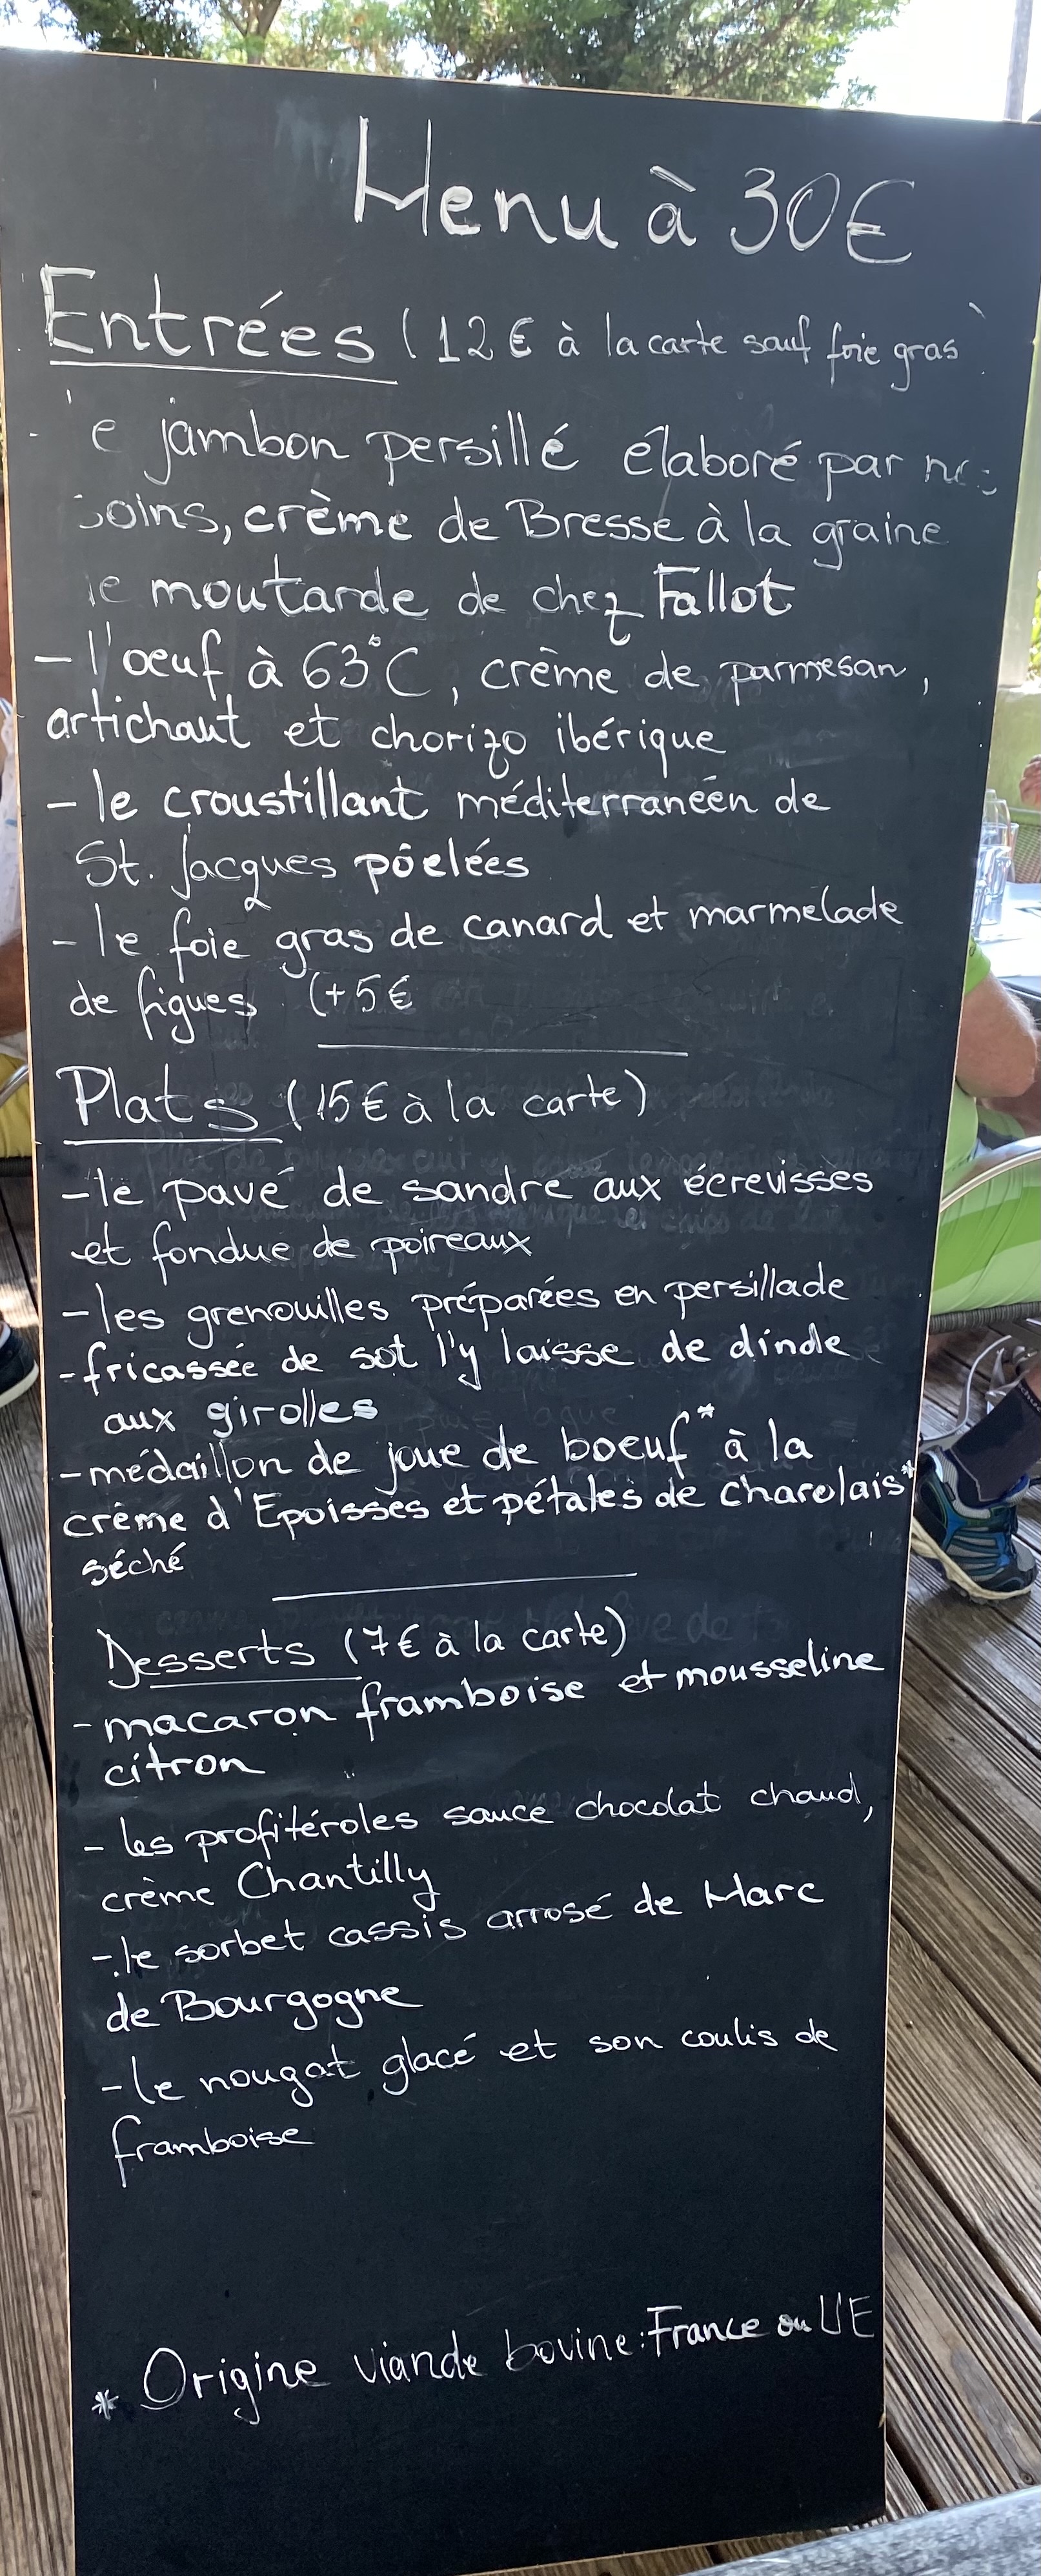 Menu à 30€
Entrées (12€ à la carte sauf foie gras)
- le jambon persillé élaboré par nos
soins, crème de Bresse à la graine
de moutarde de chez Fallot
- l'oeuf à 63°C, crème de parmesan,
artichaut et chorizo ibérique
- le croustillant méditerranéen de
St. Jacques pôelées
- le foie gras de canard et marmelade
de figues (+5€
Plats (15€ à la carte)
- le pavé de sandre aux écrevisses
et fondue de poireaux
- les grenouilles préparées en persillade
- fricassée de sot l'y laisse de dinde
aux girolles
- médaillon de joue de boeuf* à la
crème d'Epoisses et pétales de charolais*
séché
Desserts (7€ à la carte)
- macaron framboise et mousseline
citron
- les profitéroles sauce chocolat chaud,
crème Chantilly
- le sorbet cassis arrosé de Marc
de Bourgogne
- le nougat glacé et son coulis de
framboise
* Origine viande bovine : France ou UE